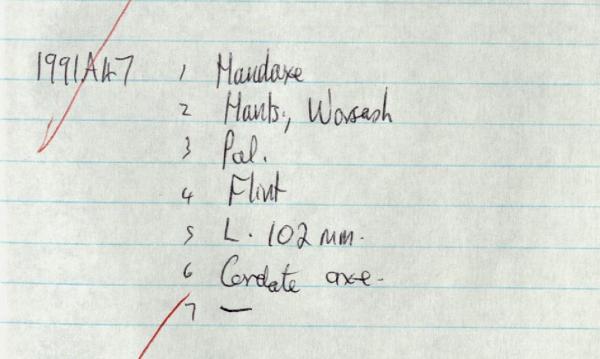 1991A47 1 Handaxe
2 Hants., Warsash
3 Pal.
4 Flint
5 L. 102 mm.
6 Cordate axe.
7 —